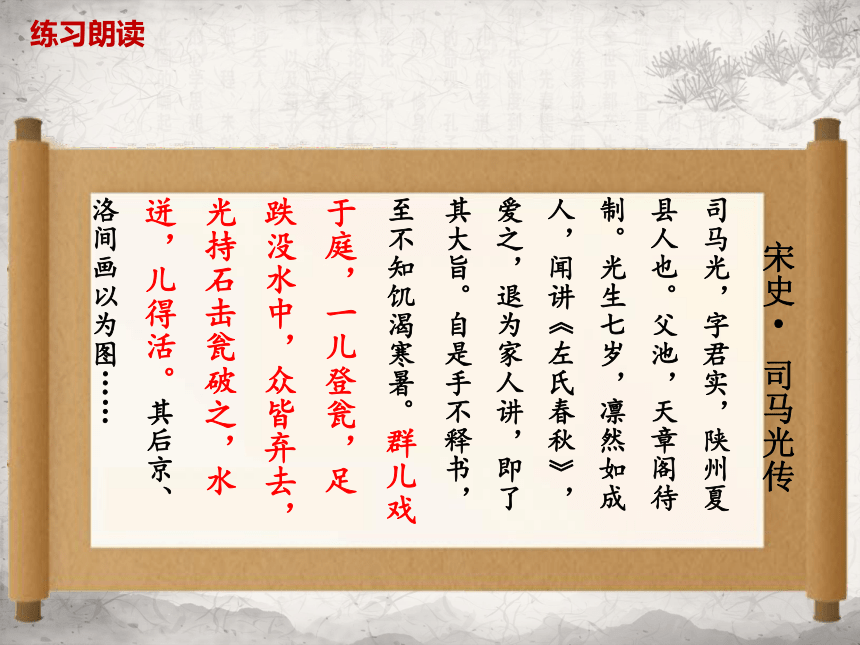 练习朗读
宋史· 司马光传
司马光，字君实，陕州夏
县人也。父池，天章阁待
制。光生七岁，凛然如成
人，闻讲《左氏春秋》，
爱之，退为家人讲，即了
其大旨。自是手不释书，
至不知饥渴寒暑。群儿戏
于庭，一儿登瓮，足
跌没水中，众皆弃去，
光持石击瓮破之，水
迸，儿得活。其后京、
洛间画以为图……